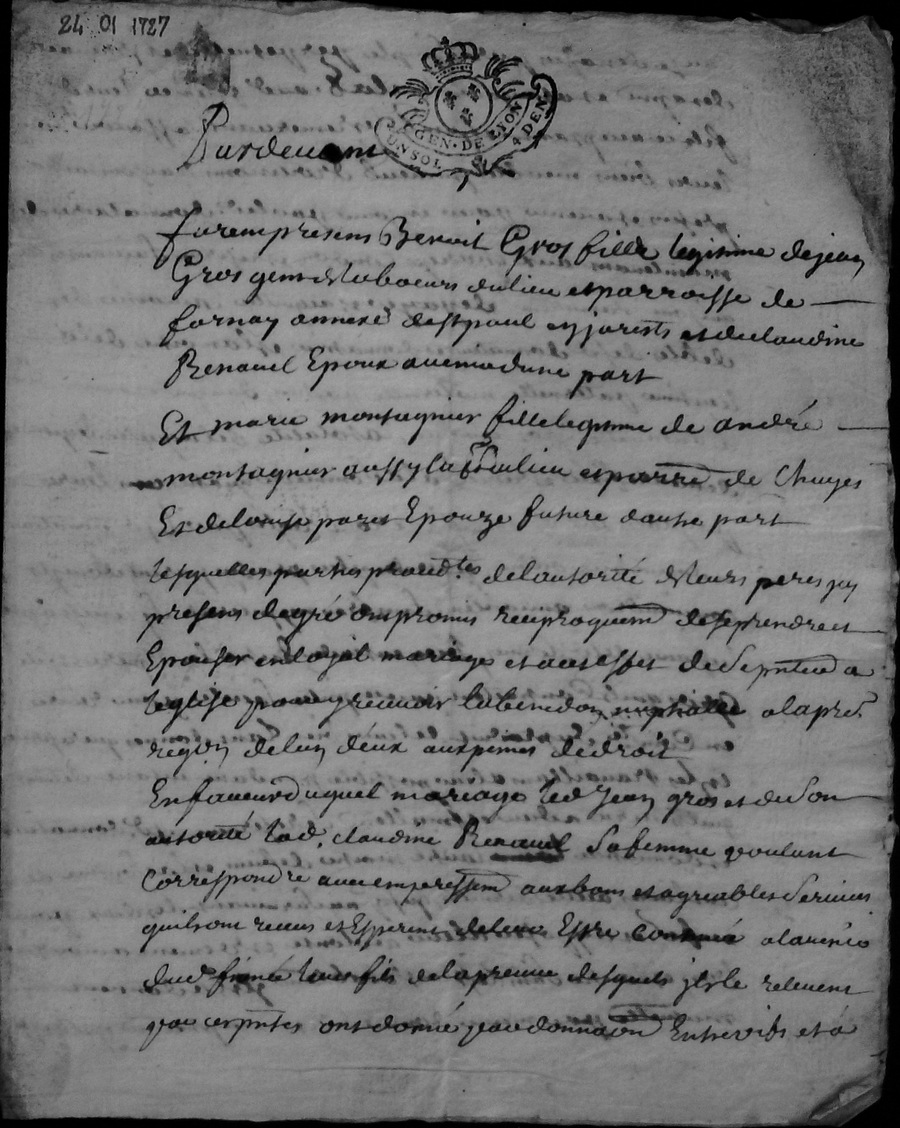 24 01 1727
GEN · DE LYON
UN SOL 4 DEN
Pardevant
furem presens Benoit Gros fille legitime de jean
Gros gens de laboeurs du lieu et parroisse de
farnay annexé de st paul en jarests et de claudine
Renauel Epoux avenir d'une part
Et marie montagnier fille legitime de andré
montagnier aussy lab du lieu et parre de Chuyes
Et de louise paret Epouze future dautre part
lesquelles parties proced.tes de lautorité de leurs peres icy
presens de gré ont promis reciproquemt de se prendre et
Epouser en loyal mariage et a cet effet de se pnter a
leglise pour y recevoir la benedon nuptialle a la pre.
reqon de lun deux aux peines de droit
En faveur duquel mariage led jean gros et de son
autorité lad. claudine Renauel sa femme voulant
correspondre avec empressemt aux bons et agreables services
quils ont receus et Esperent de leur Estre continué a lavenir
dud fiancé leur fils de la preuve desquels ils le relevent
par ces pntes ont donné par donnaon Entrevifs et a